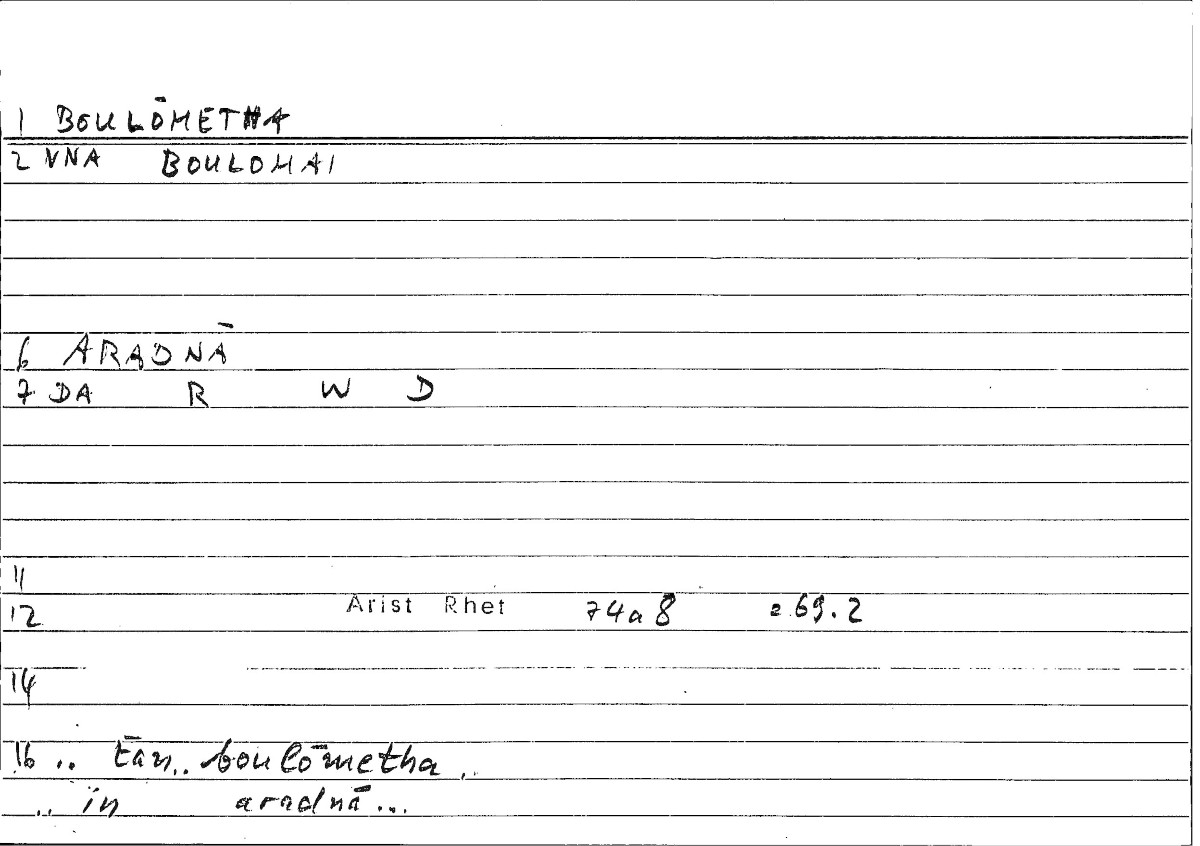 1 BOULŌMETHA
2 VNA BOULOMAI
6 ARADNĀ
7 DA R W D
11
12 Arist Rhet 74a8 269.2
14
16 .. ēan .. boulōmetha ..
.. in aradnā ...